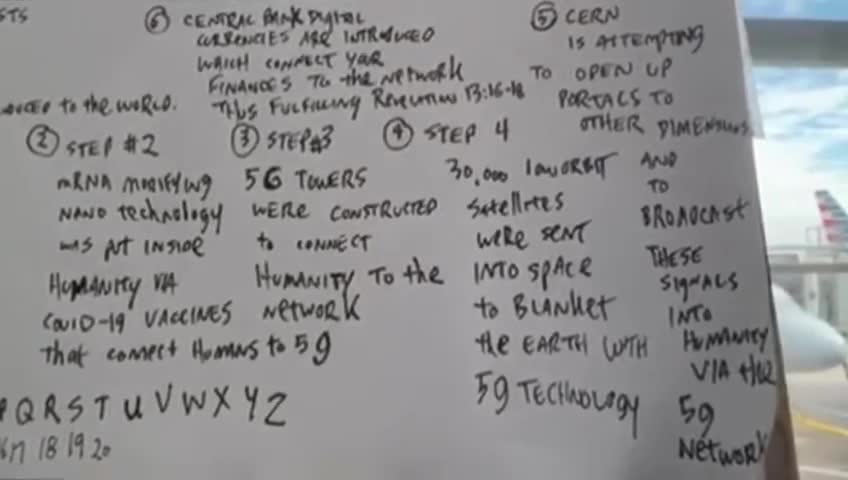 STS
⑥ CENTRAL BANK DIGITAL
CURRENCIES ARE INTRODUCED
WHICH CONNECT YOUR
FINANCES TO the NETWORK
THUS FULFILLING REVELATION 13:16-18
DUCED TO the WORLD.
② STEP #2
mRNA MODIFYING
NANO technology
WAS PUT INSIDE
HUMANITY VIA
COVID-19 VACCINES
that connect Humans to 5g
③ STEP#3
5G TOWERS
WERE CONSTRUCTED
to CONNECT
HUMANITY TO the
NETWORK
④ STEP 4
30,000 low ORBIT
Satellites
WERE SENT
INTO SPACE
to BLANKET
the EARTH WITH
5g TECHNOLOGY
⑤ CERN
IS ATTEMPTING
TO OPEN UP
PORTALS TO
OTHER DIMENSIONS
AND
TO
BROADCAST
THESE
SIGNALS
INTO
HUMANITY
VIA the
5g
NETWORK
P Q R S T U V W X Y Z
17 18 19 20